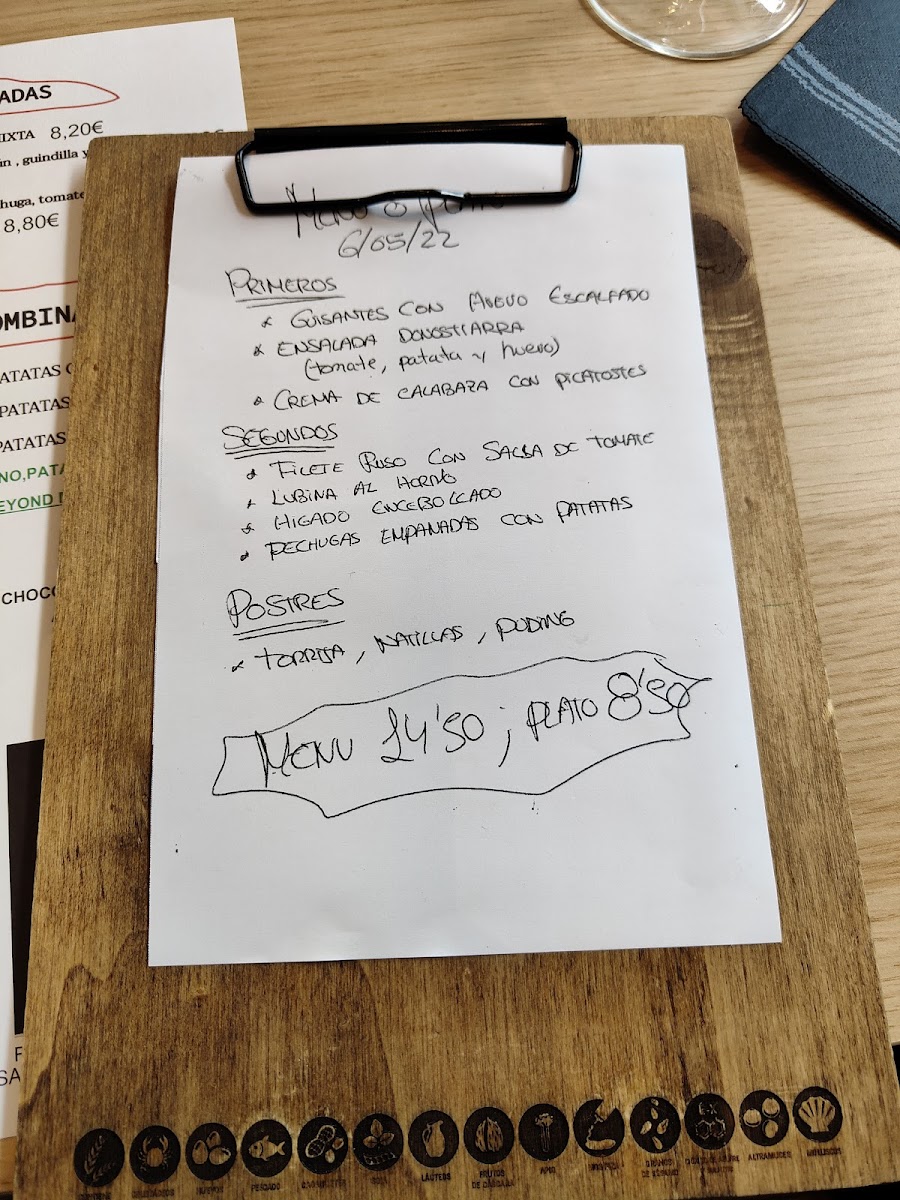 ADAS
IXTA 8,20€
n , guindilla y
huga, tomate
8,80€
OMBINA
ATATAS
PATATAS
PATATAS
NO,PATA
EYOND
CHOCO
SA
MENU o PLATO
6/05/22
PRIMEROS
* GUISANTES CON HUEVO ESCALFADO
* ENSALADA DONOSTIARRA
(tomate, patata y huevo)
* CREMA DE CALABAZA CON PICATOSTES
SEGUNDOS
* FILETE RUSO CON SALSA DE TOMATE
* LUBINA AL HORNO
* HIGADO ENCEBOLLADO
* PECHUGAS EMPANADAS CON PATATAS
POSTRES
* TORRIJA, NATILLAS, PUDING
MENU 14'50 ; PLATO 8'50
HUEVOS
PESCADO
CACAHUETES
SOJA
LACTEOS
FRUTOS
DE CÁSCARA
APIO
MOSTAZA
GRANOS
DE SÉSAMO
ALTRAMUCES
MOLUSCOS